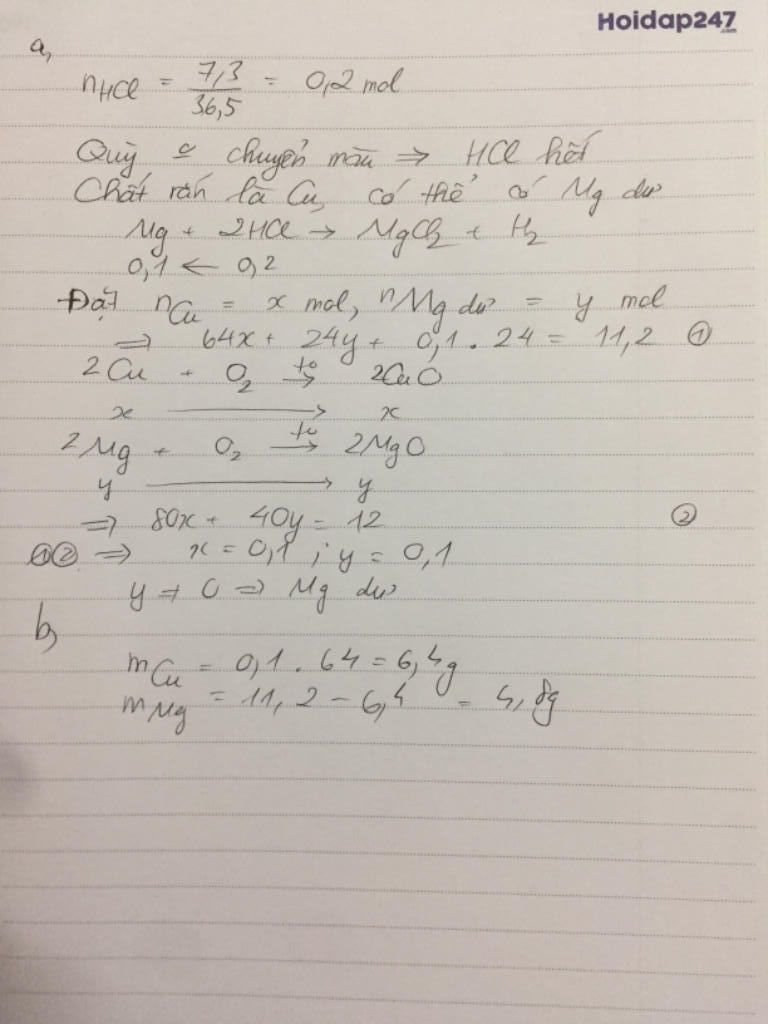 Hoidap247
.com
a,
nHCl = 7,3/36,5 = 0,2 mol
Quỳ o chuyển màu ⇒ HCl hết
Chất rắn là Cu, có thể có Mg dư
Mg + 2HCl → MgCl2 + H2
0,1 ← 0,2
Đặt nCu = x mol, nMg dư = y mol
⇒ 64x + 24y + 0,1 . 24 = 11,2 ①
2Cu + O2 →(to) 2CuO
x → x
2Mg + O2 →(to) 2MgO
y → y
⇒ 80x + 40y = 12 ②
①② ⇒ x = 0,1 ; y = 0,1
y ≠ 0 ⇒ Mg dư
b,
mCu = 0,1 . 64 = 6,4g
mMg = 11,2 - 6,4 = 4,8g